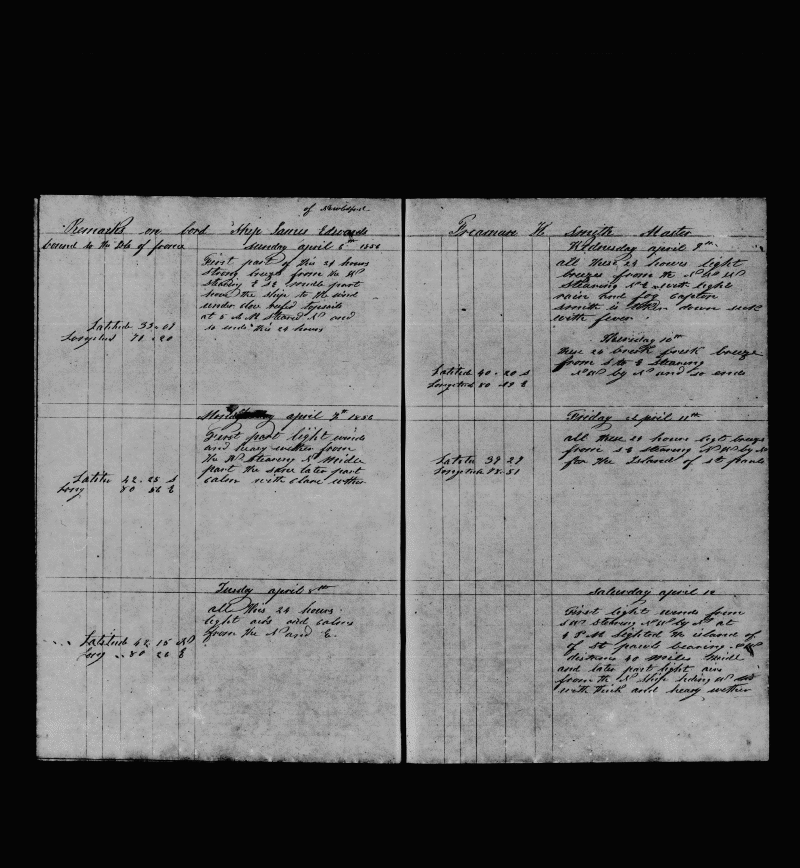 of Newbedford
Remarks on bord Ship James Edwards
bound to the Isle of france
Sunday april 6th 1856
First part of this 24 hours
strong breeze from the W
stearing S E midle part
hove the ship to the wind
under close reefd topsails
at 5 A M steared N and
so ends this 24 hours
Latitud 33 - 07
Longitud 78 - 20
Monday april 7th 1856
First part light winds
and heavy wether from
the W stearing N midle
part the same later part
calm with clare wether
Latitu 42 - 25 S
Long 80 56 E
Tusdy april 8th
all this 24 hours
light airs and calms
from the N and E.
Latitude 42 15 S
Long 80 26 E
Freaman H Smith Master
Wednesday april 9th
all these 24 hours light
breeze from the
Stearing N E with light
rain and fog Capten
smith is taken down sick
with fever
Thursday 10th
these 24 fresh breeze
from S to E Stearing
N W by N and so ends
Latitud 40 - 20 S
Longetud 80 19 E
Friday april 11th
all these 24 hours light breeze
from S E stearing N W by N
for the Island of st pauls
Latitu 39 29
Longitude 78 - 51
Saturday april 12
First light winds from
S W stearing N W by N at
4 P M Sighted the island of
of st pauls bearing
distans 40 miles midle
and later part light airs
from the N Ship heding W
with thick and heavy wether